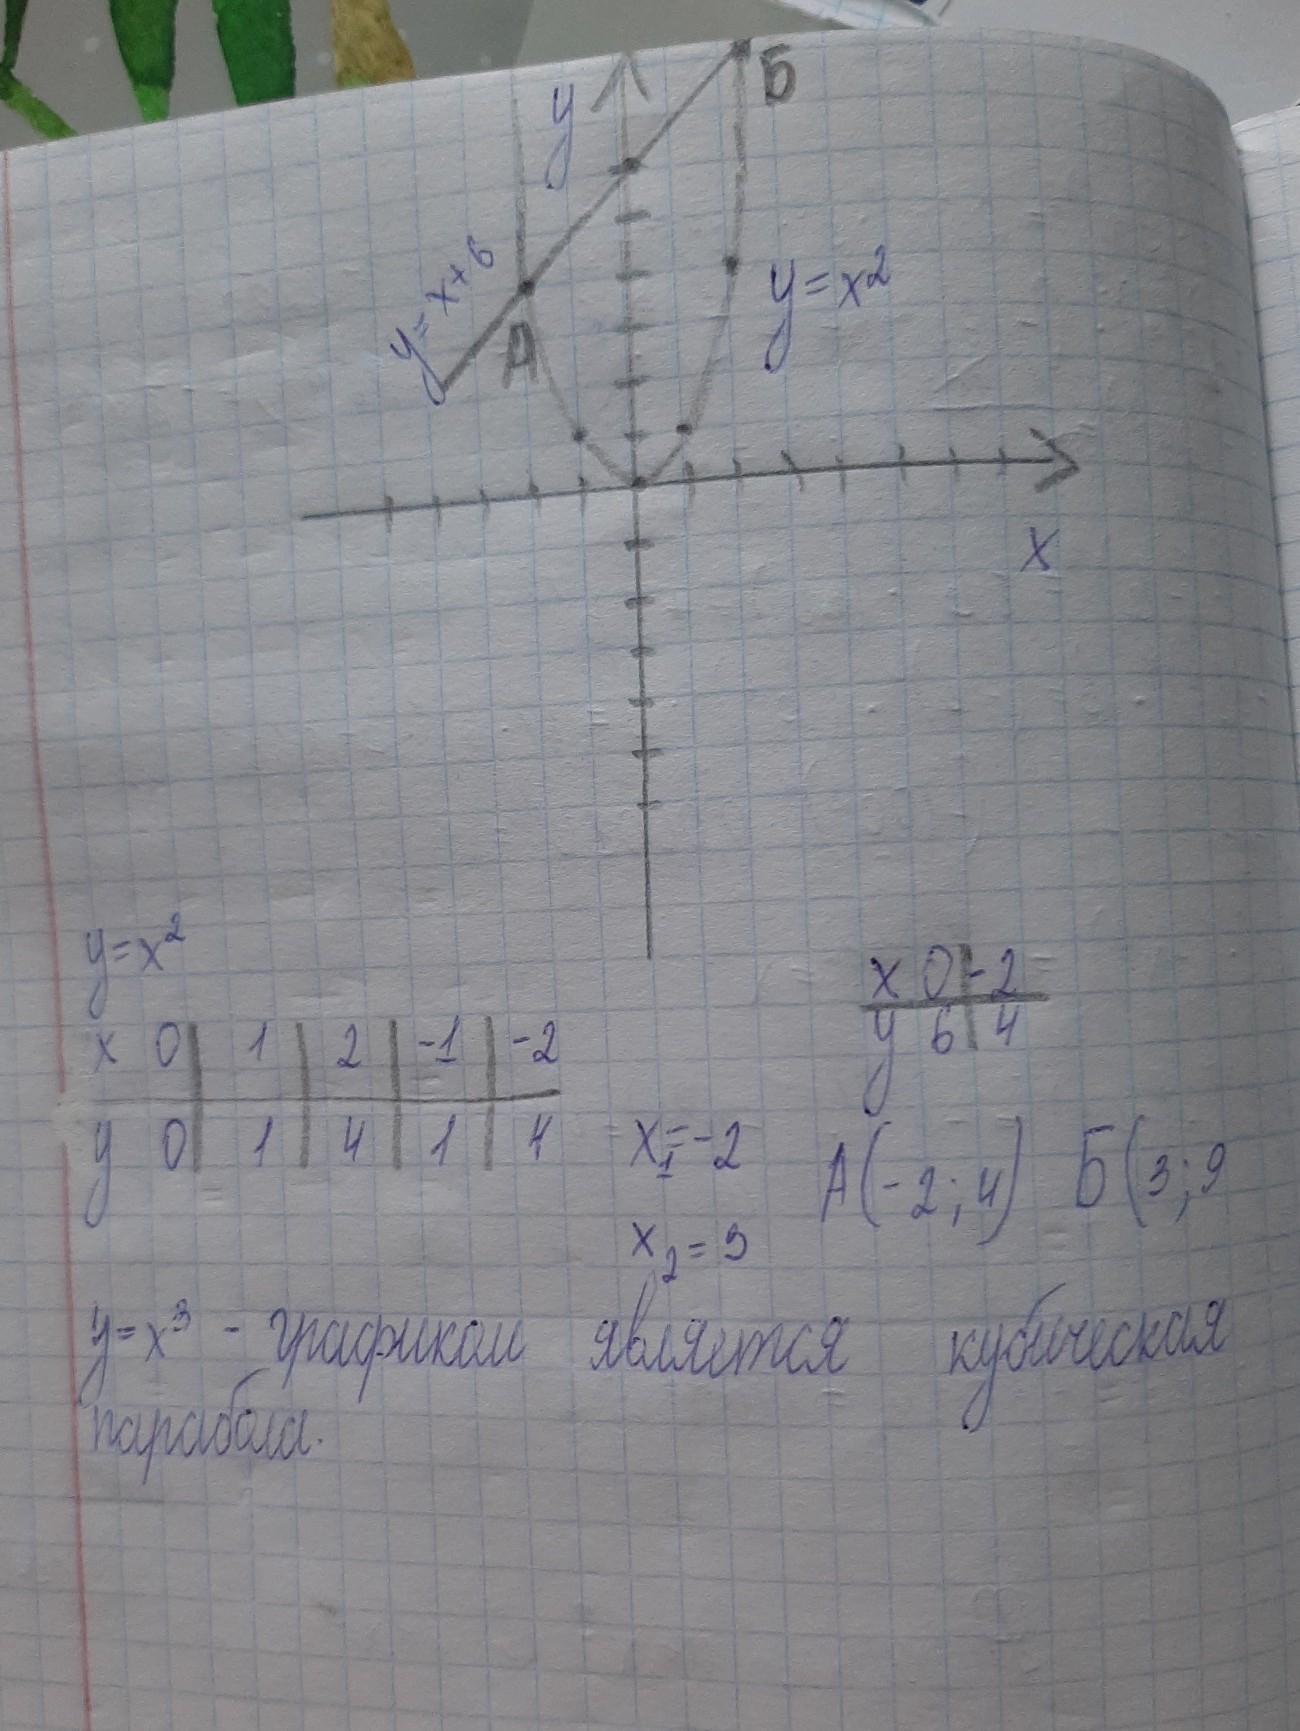 y
Б
y = x + 6
y = x²
А
x
y = x²
x 0 | 1 | 2 | -1 | -2
y 0 | 1 | 4 | 1 | 4
x 0 | -2
y 6 | 4
x₁ = -2
А(-2; 4) Б(3; 9
x₂ = 3
y = x³ - графиком является кубическая
парабола.